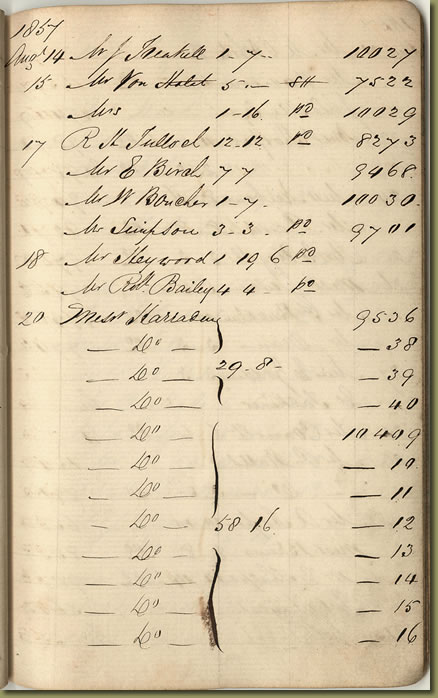 1857
Augt 14 Mr J Treakell 1 - 7 -- 10027
15 Mr Von Holst 5 . -- 8H 7522
Mrs 1 - 16 . pd 10029
17 R H Tulloch 12 - 12 pd 8273
Mr E Birch 7 7 9468
Mr W Boucher 1 - 7 . 10030
Mr Simpson 3 - 3 . pd 9701
18 Mr Heywood 1 19 6 pd
Mr Robt. Bailey 4 4 pd
20 Messr 9536
— Do — — 38
— Do — 29 . 8 - — 39
— Do — — 40
— Do — 10409
— Do — — 10
— Do — — 11
— Do — 58 16 — 12
— Do — — 13
— Do — — 14
— Do — — 15
— Do — — 16